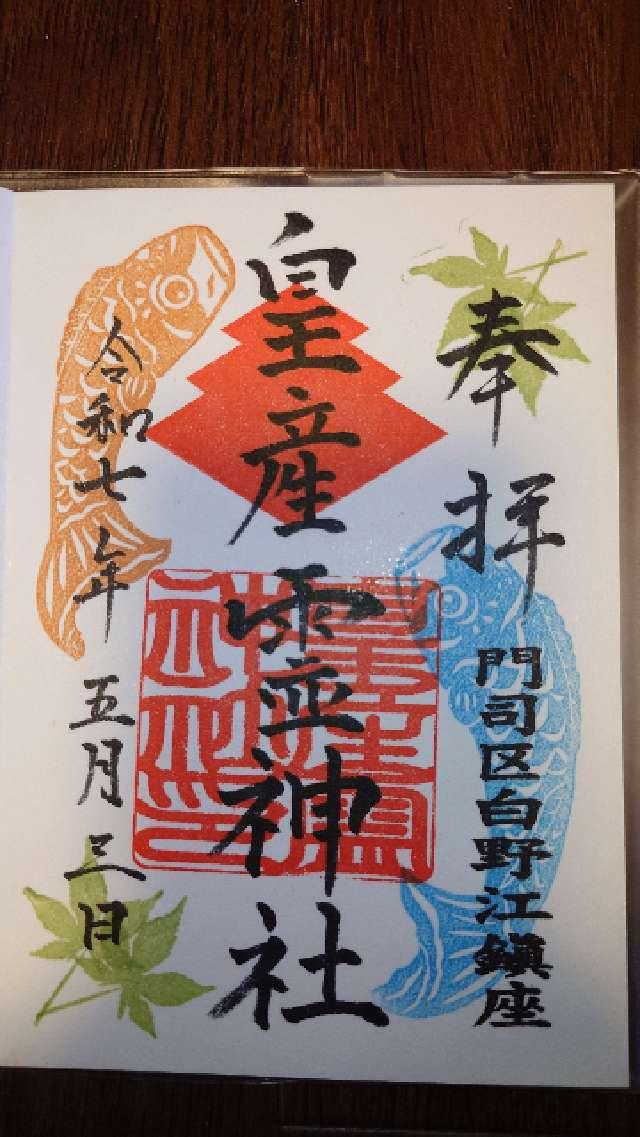 奉拝
門司区白野江鎮座
皇産霊神社
令和七年五月三日